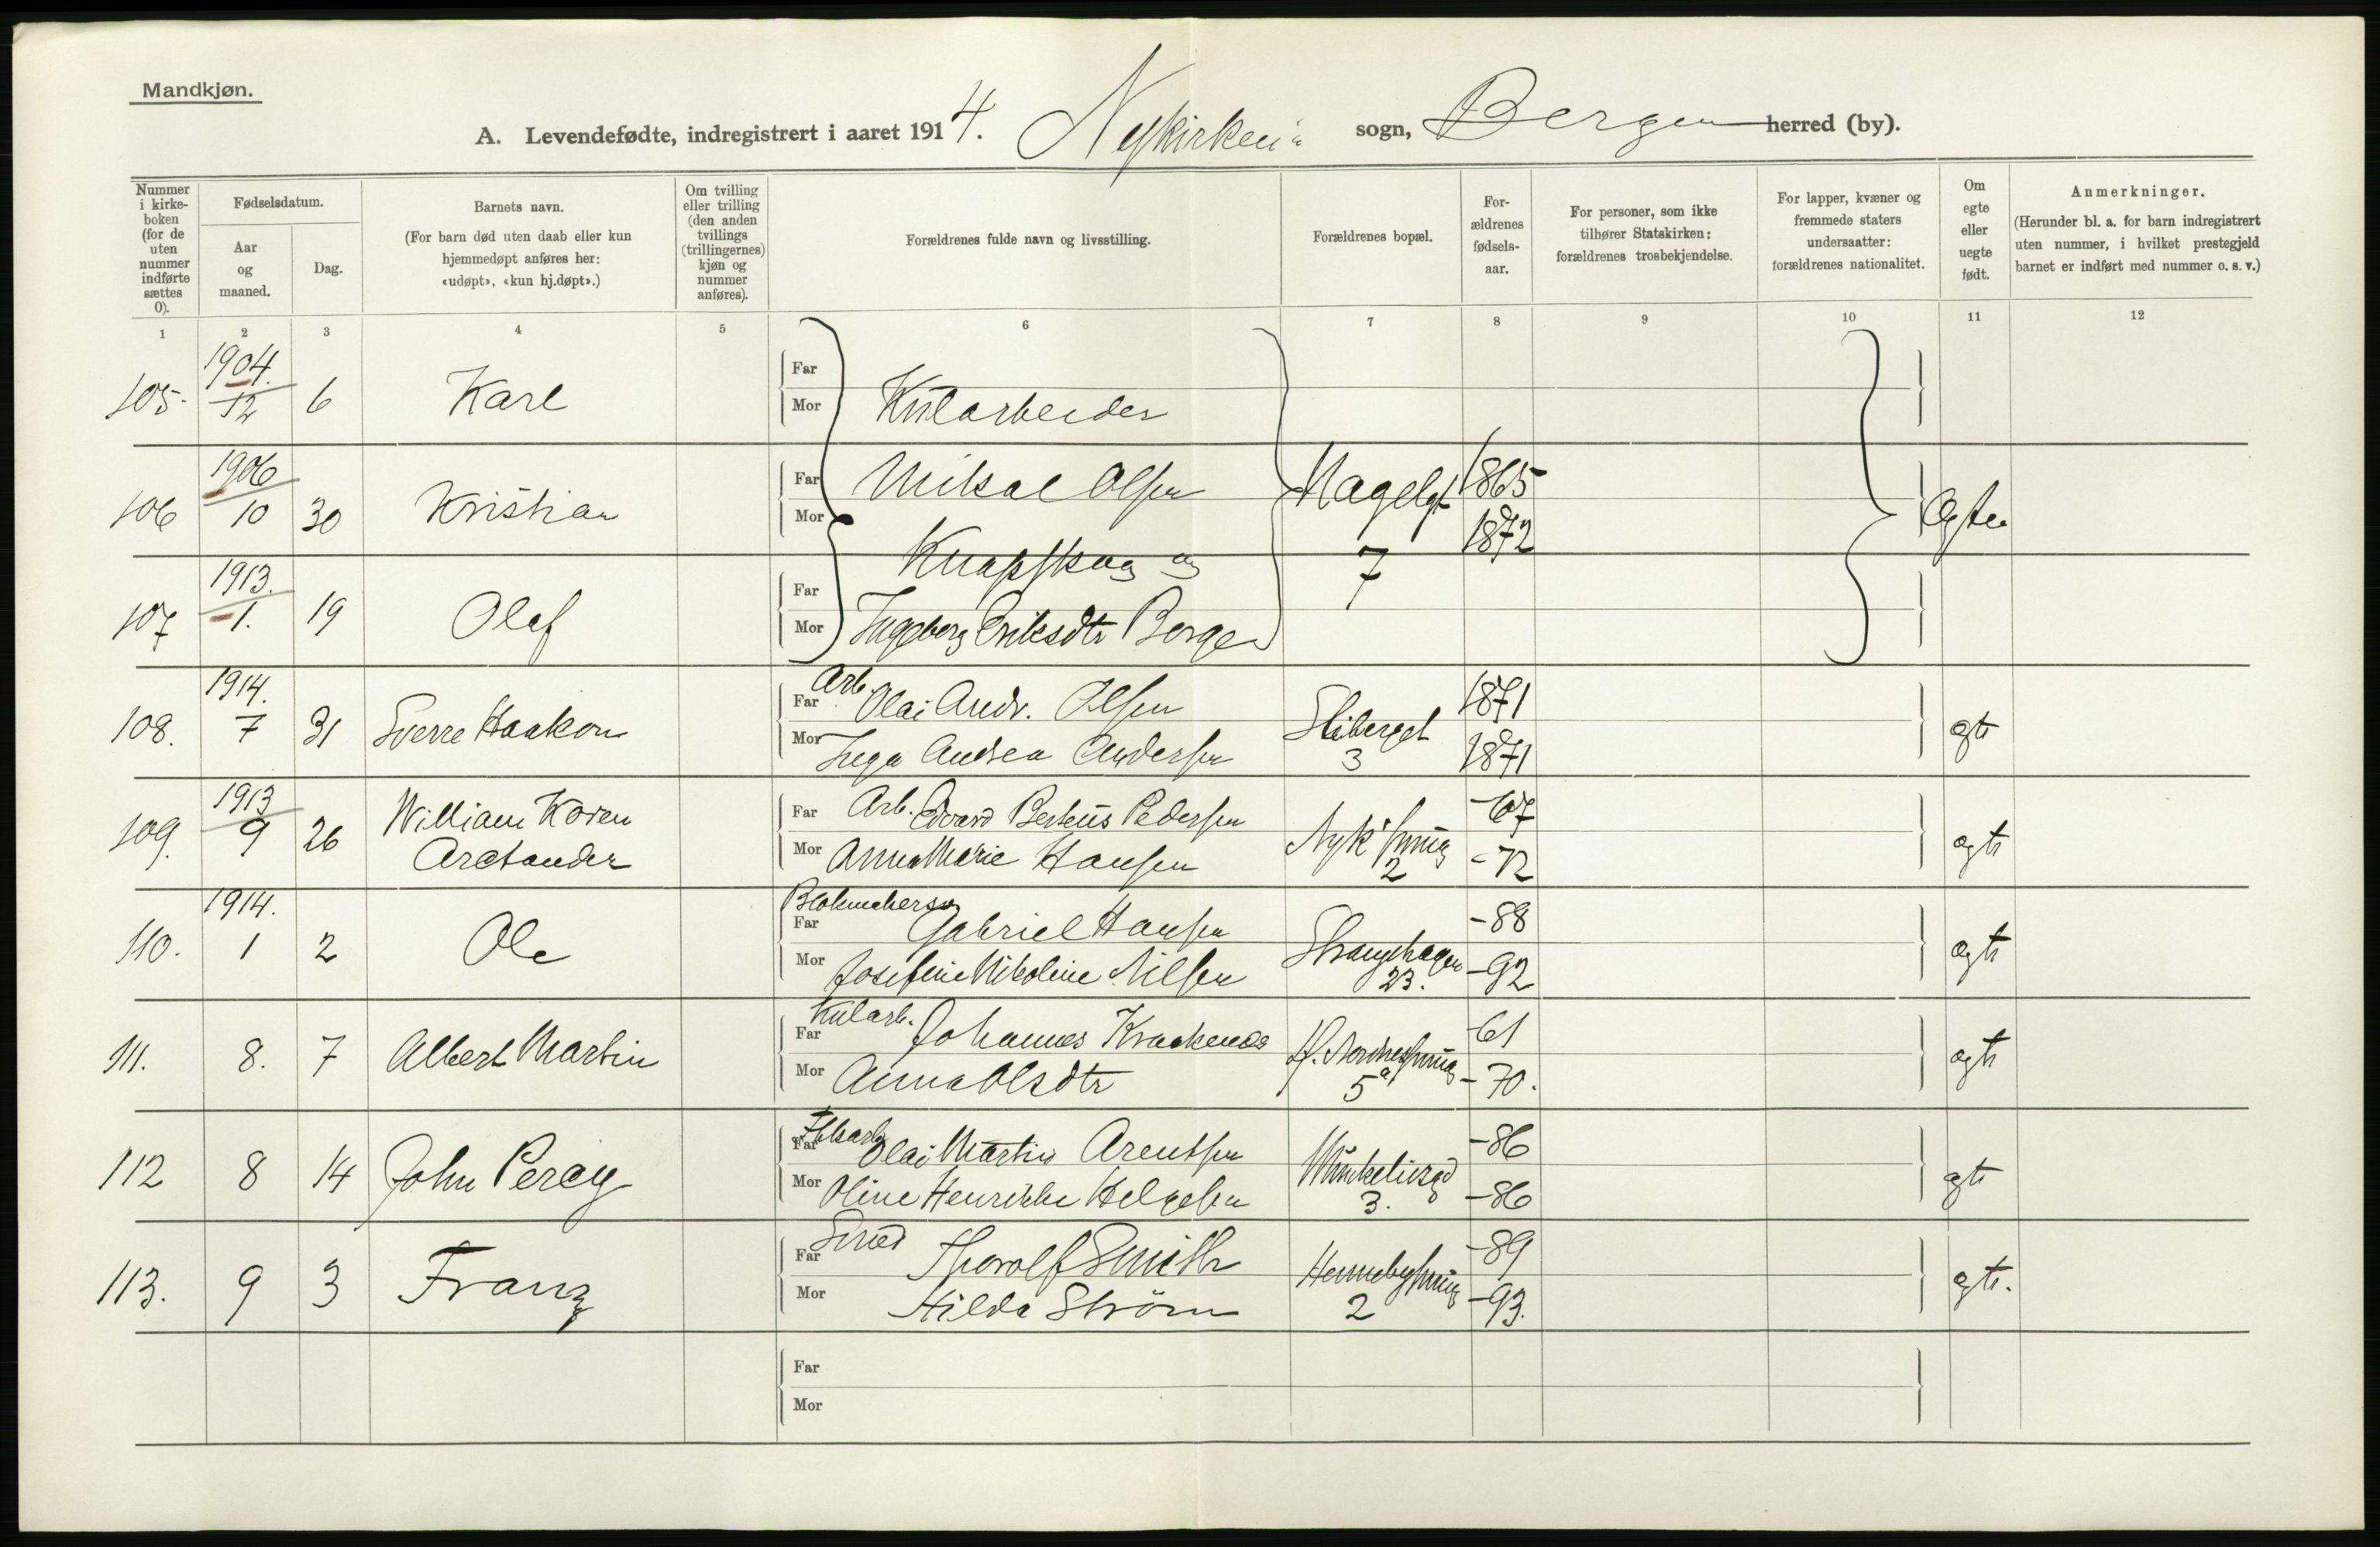 Mandkjøn.
A. Levendefødte, indregistrert i aaret 1914. Nykirkens sogn, Bergen herred (by).
Nummer i kirke-boken (for de uten nummer indførte sættes 0).
Fødselsdatum.
Aar og maaned.
Dag.
Barnets navn.
(For barn død uten daab eller kun hjemmedøpt anføres her: «udøpt», «kun hj.døpt».)
Om tvilling eller trilling (den anden tvillings (trillingernes) kjøn og nummer anføres).
Forældrenes fulde navn og livsstilling.
Forældrenes bopæl.
For-ældrenes fødsels-aar.
For personer, som ikke tilhører Statskirken: forældrenes trosbekjendelse.
For lapper, kvæner og fremmede staters undersaatter: forældrenes nationalitet.
Om egte eller uegte født.
Anmerkninger.
(Herunder bl. a. for barn indregistrert uten nummer, i hvilket prestegjeld barnet er indført med nummer o. s. v.)
1 2 3 4 5 6 7 8 9 10 11 12
105. 1904. 12 6 Karl
Far
Mor Kularbeider
106 1906 10 30 Kristian
Far Mikal Olsen Nagelgt 1865
Mor 1872 Ægte
Knapskog og 7
107 1913. 1. 19 Olaf
Far
Mor Ingeborg Eriksdtr Berge
108. 1914. 7 31 Sverre Haakon
Far Arb. Olai Andr. Olsen Sliberget 1871
Mor Inga Andrea Andersen 3 1871 ægte
109. 1913 9 26 William Koren Arctander
Far Arb. Edvard Berteus Pedersen -67
Mor Anna Marie Hansen 2 -72 ægte
110. 1914. 1 2 Ole
Far Gabriel Hansen Strangehagen -88
Mor Josefine Nikoline Nilsen 23. -92 ægte
111. 8. 7 Albert Martin
Far Kularb. Johannes Kraakenes -61
Mor Anna Olsdtr 5a -70. ægte
112 8 14 John Percy
Far Olai Martin Arentsen -86
Mor Oline Henrikke Helgesen 3. -86 ægte
113. 9 3 Franz
Far Thorolf Smith -89
Mor Hilda Ström 2 -93. ægte.
Far
Mor